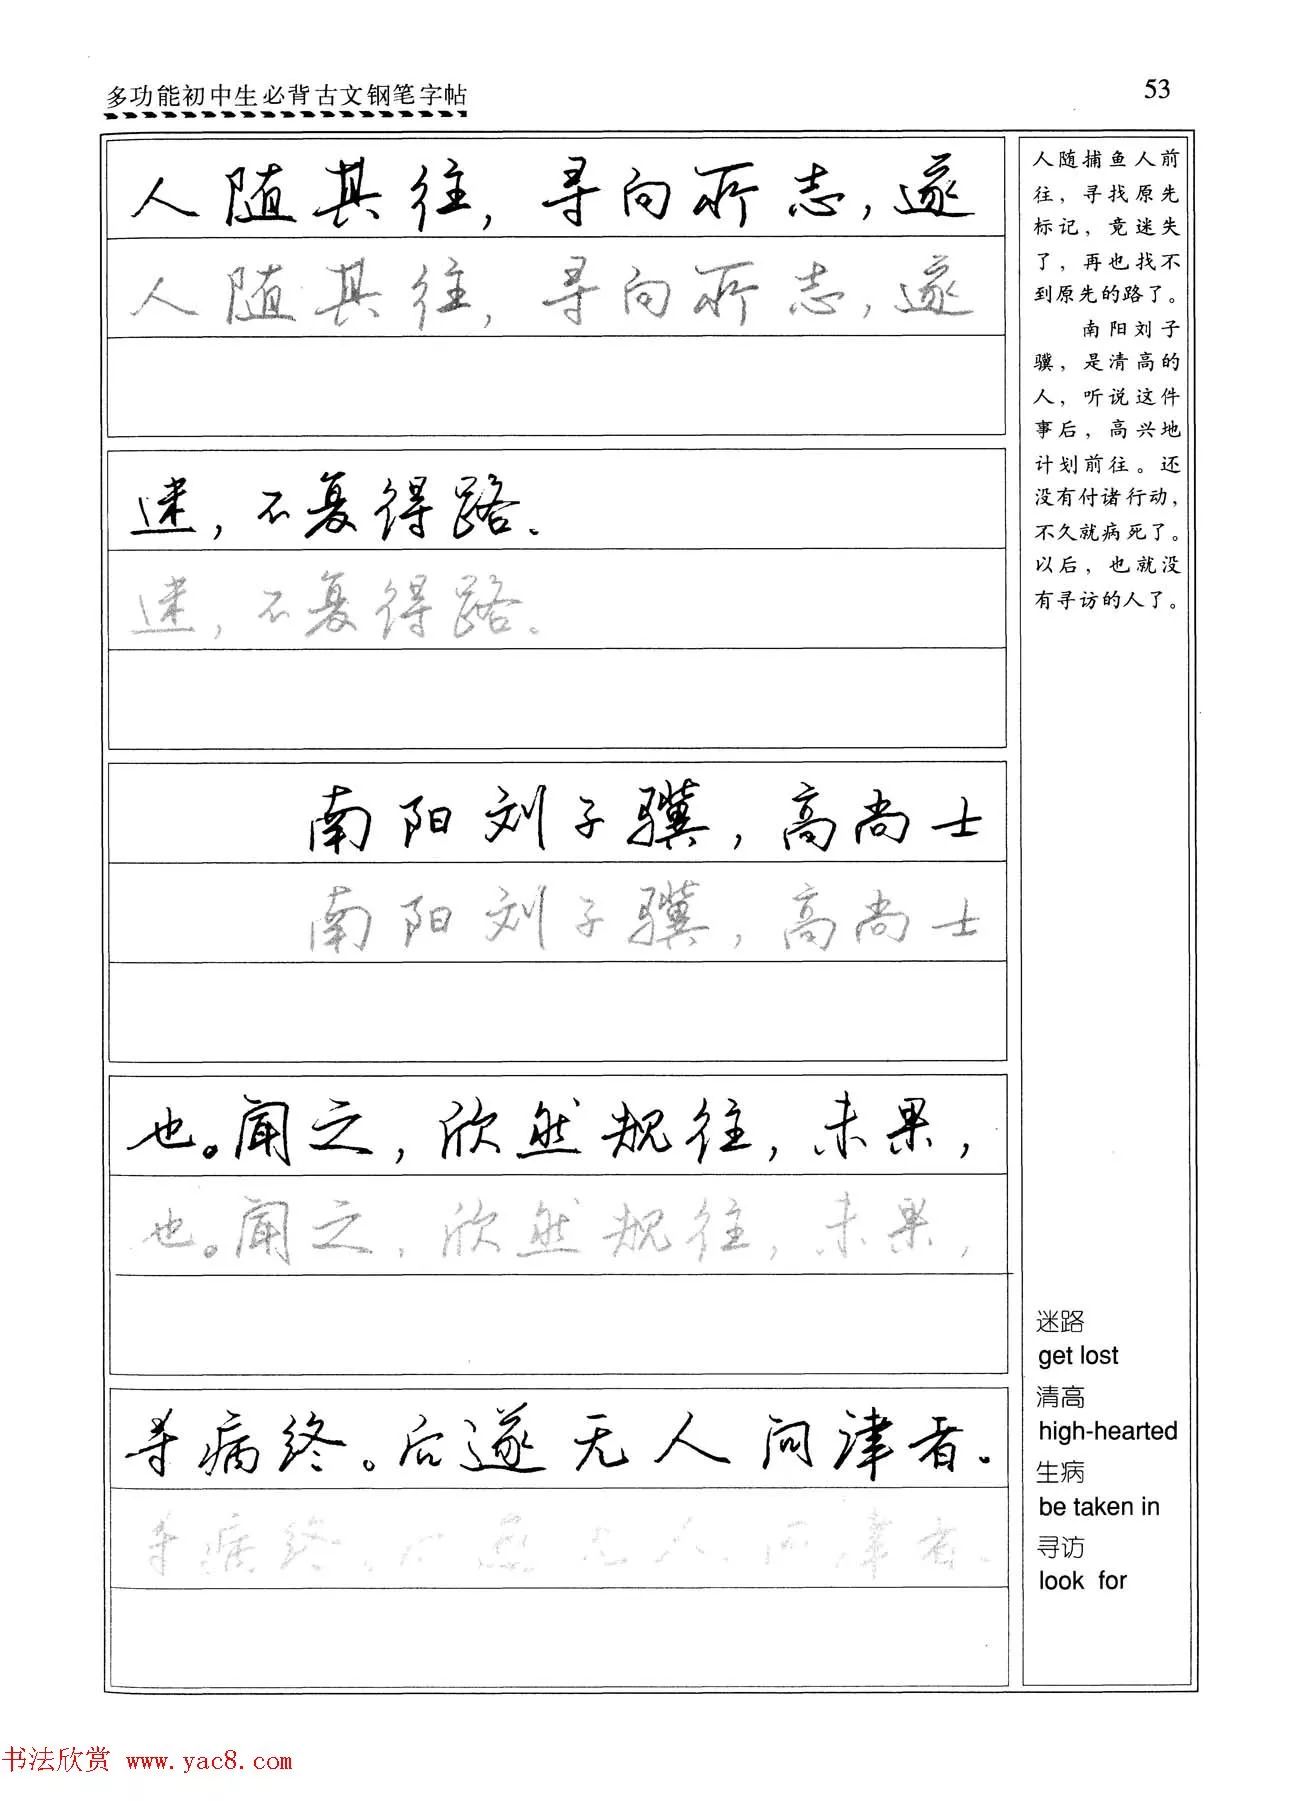 多功能初中生必背古文钢笔字帖
53
人随其往，寻向所志，遂
人随其往，寻向所志，遂
迷，不复得路。
迷，不复得路。
南阳刘子骥，高尚士
南阳刘子骥，高尚士
也。闻之，欣然规往，未果，
也。闻之，欣然规往，未果，
寻病终。后遂无人问津者。
寻病终。后遂无人问津者。
人随捕鱼人前
往，寻找原先
标记，竟迷失
了，再也找不
到原先的路了。
南阳刘子
骥，是清高的
人，听说这件
事后，高兴地
计划前往。还
没有付诸行动，
不久就病死了。
以后，也就没
有寻访的人了。
迷路
get lost
清高
high-hearted
生病
be taken in
寻访
look for
书法欣赏 www.yac8.com